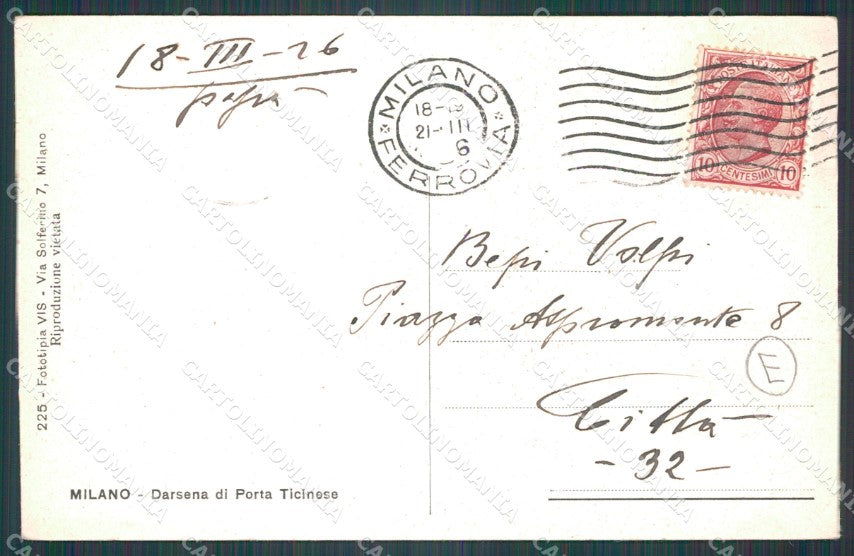 18-III-26
papà
MILANO
18-19
21-III
6
FERROVIA
POSTE ITALIANE
10 CENTESIMI 10
Bepi Volpi
Piazza Aspromonte 8
E
Città
-32-
225 - Fototipia VIS - Via Solferino 7, Milano
Riproduzione vietata
MILANO - Darsena di Porta Ticinese
CARTOLINOMANIA